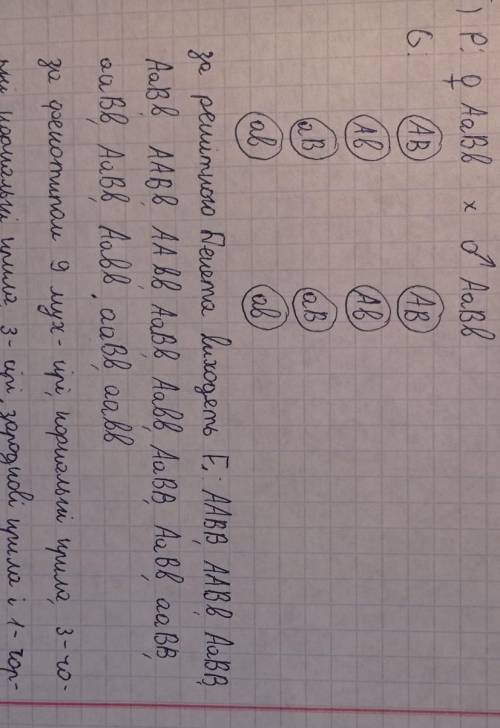 ) P: ♀ AaBb x ♂ AaBb
G: AB AB
Ab Ab
aB aB
ab ab
за решіткою Пенета виходеть F₁: AABB, AABb, AaBB,
AaBb, AABb, AAbb, AaBb, Aabb, AaBB, AaBb, aaBB,
aaBb, AaBb, Aabb, aaBb, aabb
за фенотипом 9 мух - сірі, нормальні крила, 3 - чо-
рні нормальні крила, 3 - сірі, зародкові крила і 1 - чор-